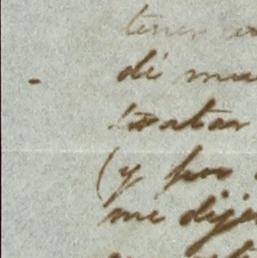 tener
di mu
tratar
(y por
me dije